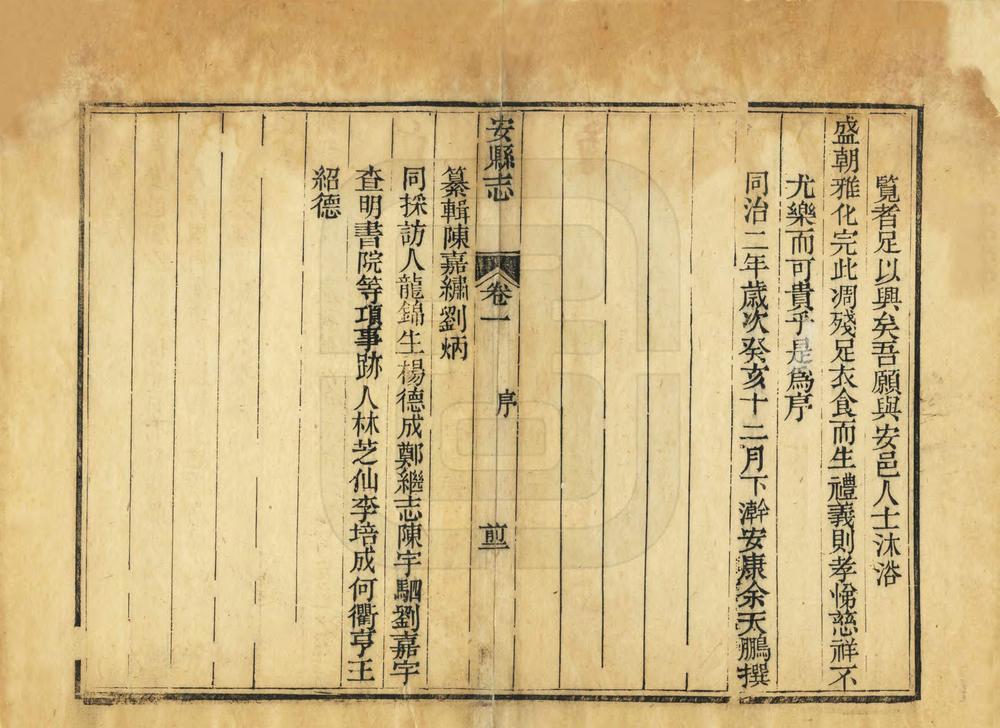 覽者足以興矣吾願與安邑人士沐浴
盛朝雅化完此凋殘足衣食而生禮義則孝悌慈祥不
尤樂而可貴乎是爲序
同治二年歲次癸亥十二月下澣安康余天鵬撰
安縣志
卷一
序
纂輯陳嘉繡劉炳
同採訪人龍錦生楊德成鄭繼志陳宇駟劉嘉宇
查明書院等項事跡人林芝仙李培成何衢亨王
紹德